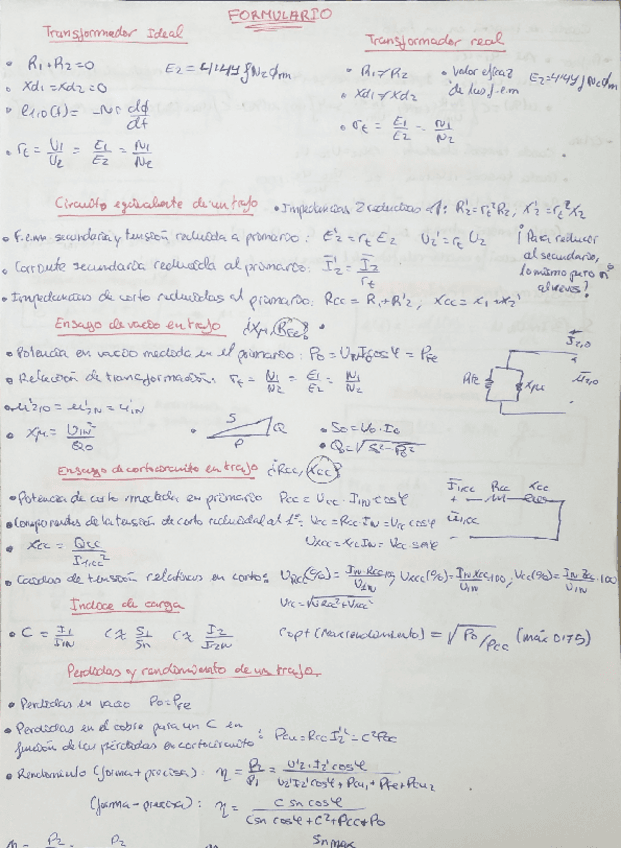 FORMULARIO
Transformador Ideal
• R1 + R2 = 0    E2 = 4'44 f N2 ɸm
• Xd1 = Xd2 = 0
• e1,0(t) = -N· dɸ/dt
• rt = U1/U2 = E1/E2 = N1/N2
Transformador real
• R1 ≠ R2    • valor eficaz de las f.e.m    E2 = 4'44 f N2 ɸm
• Xd1 ≠ Xd2
• rt = E1/E2 = N1/N2
Circuito equivalente de un trafo    • Impedancias 2 reducidas 1ª: R2' = rt² R2, X2' = rt² X2
• F.e.m secundaria y tensión reducida a primario: E2' = rt E2    U2' = rt U2
¡Para reducir
al secundario,
lo mismo pero
al reves!
• Corriente secundaria reducida al primario: I2' = I2/rt
• Impedancias de corto reducidas al primario: Rcc = R1 + R'2, Xcc = X1 + X2'
Ensayo de vacío en trafo    ¿Xμ, RFe?
• Potencia en vacío medida en el primario: P0 = UN I0 cos φ = PFe
• Relación de transformación: rt = N1/N2 = E1/E2 = N1/N2
I2,0
RFe    Xμ    U2,0
• u'2,0 = u'2N = u1N
• Xμ = U1N²/Q0
• S    Q    P
• S0 = U0 · I0
• Q0 = √S0² - P0²
Ensayo de cortocircuito en trafo    ¿Rcc, Xcc?
• Potencia de corto medida en primario    Pcc = Ucc · I1N cos φ
I1,cc    Rcc    Xcc
U1,cc
• Componentes de la tensión de corto reducida al 1º: Urcc = Rcc I1N = Ucc cos φ
UXcc = Xcc I1N = Ucc sen φ
• Xcc = Qcc/I1cc²
• Caídas de tensión relativas en corto: URcc(%) = I1N · Rcc/U1N · 100; UXcc(%) = I1N Xcc/U1N · 100; Ucc(%) = I1N Zcc/U1N · 100
Ucc = √URcc² + UXcc²
Indice de carga
• C = I1/I1N    C ≈ S1/Sn    C ≈ I2/I2N    Copt (max rendimiento) = √P0/Pcc (máx 0'75)
Perdidas y rendimiento de un trafo
• Perdidas en vacío    P0 = PFe
• Perdidas en el cobre para un C en
función de las pérdidas en cortocircuito: Pcu = Rcc I2'² = C² Pcc
• Rendimiento (forma + precisa): η = P2/P1 = U'2 · I2' cos φ/U2' I2' cos φ + Pcu1 + PFe + Pcu2
(forma - precisa): η = C Sn cos φ/C Sn cos φ + C² + Pcc + P0